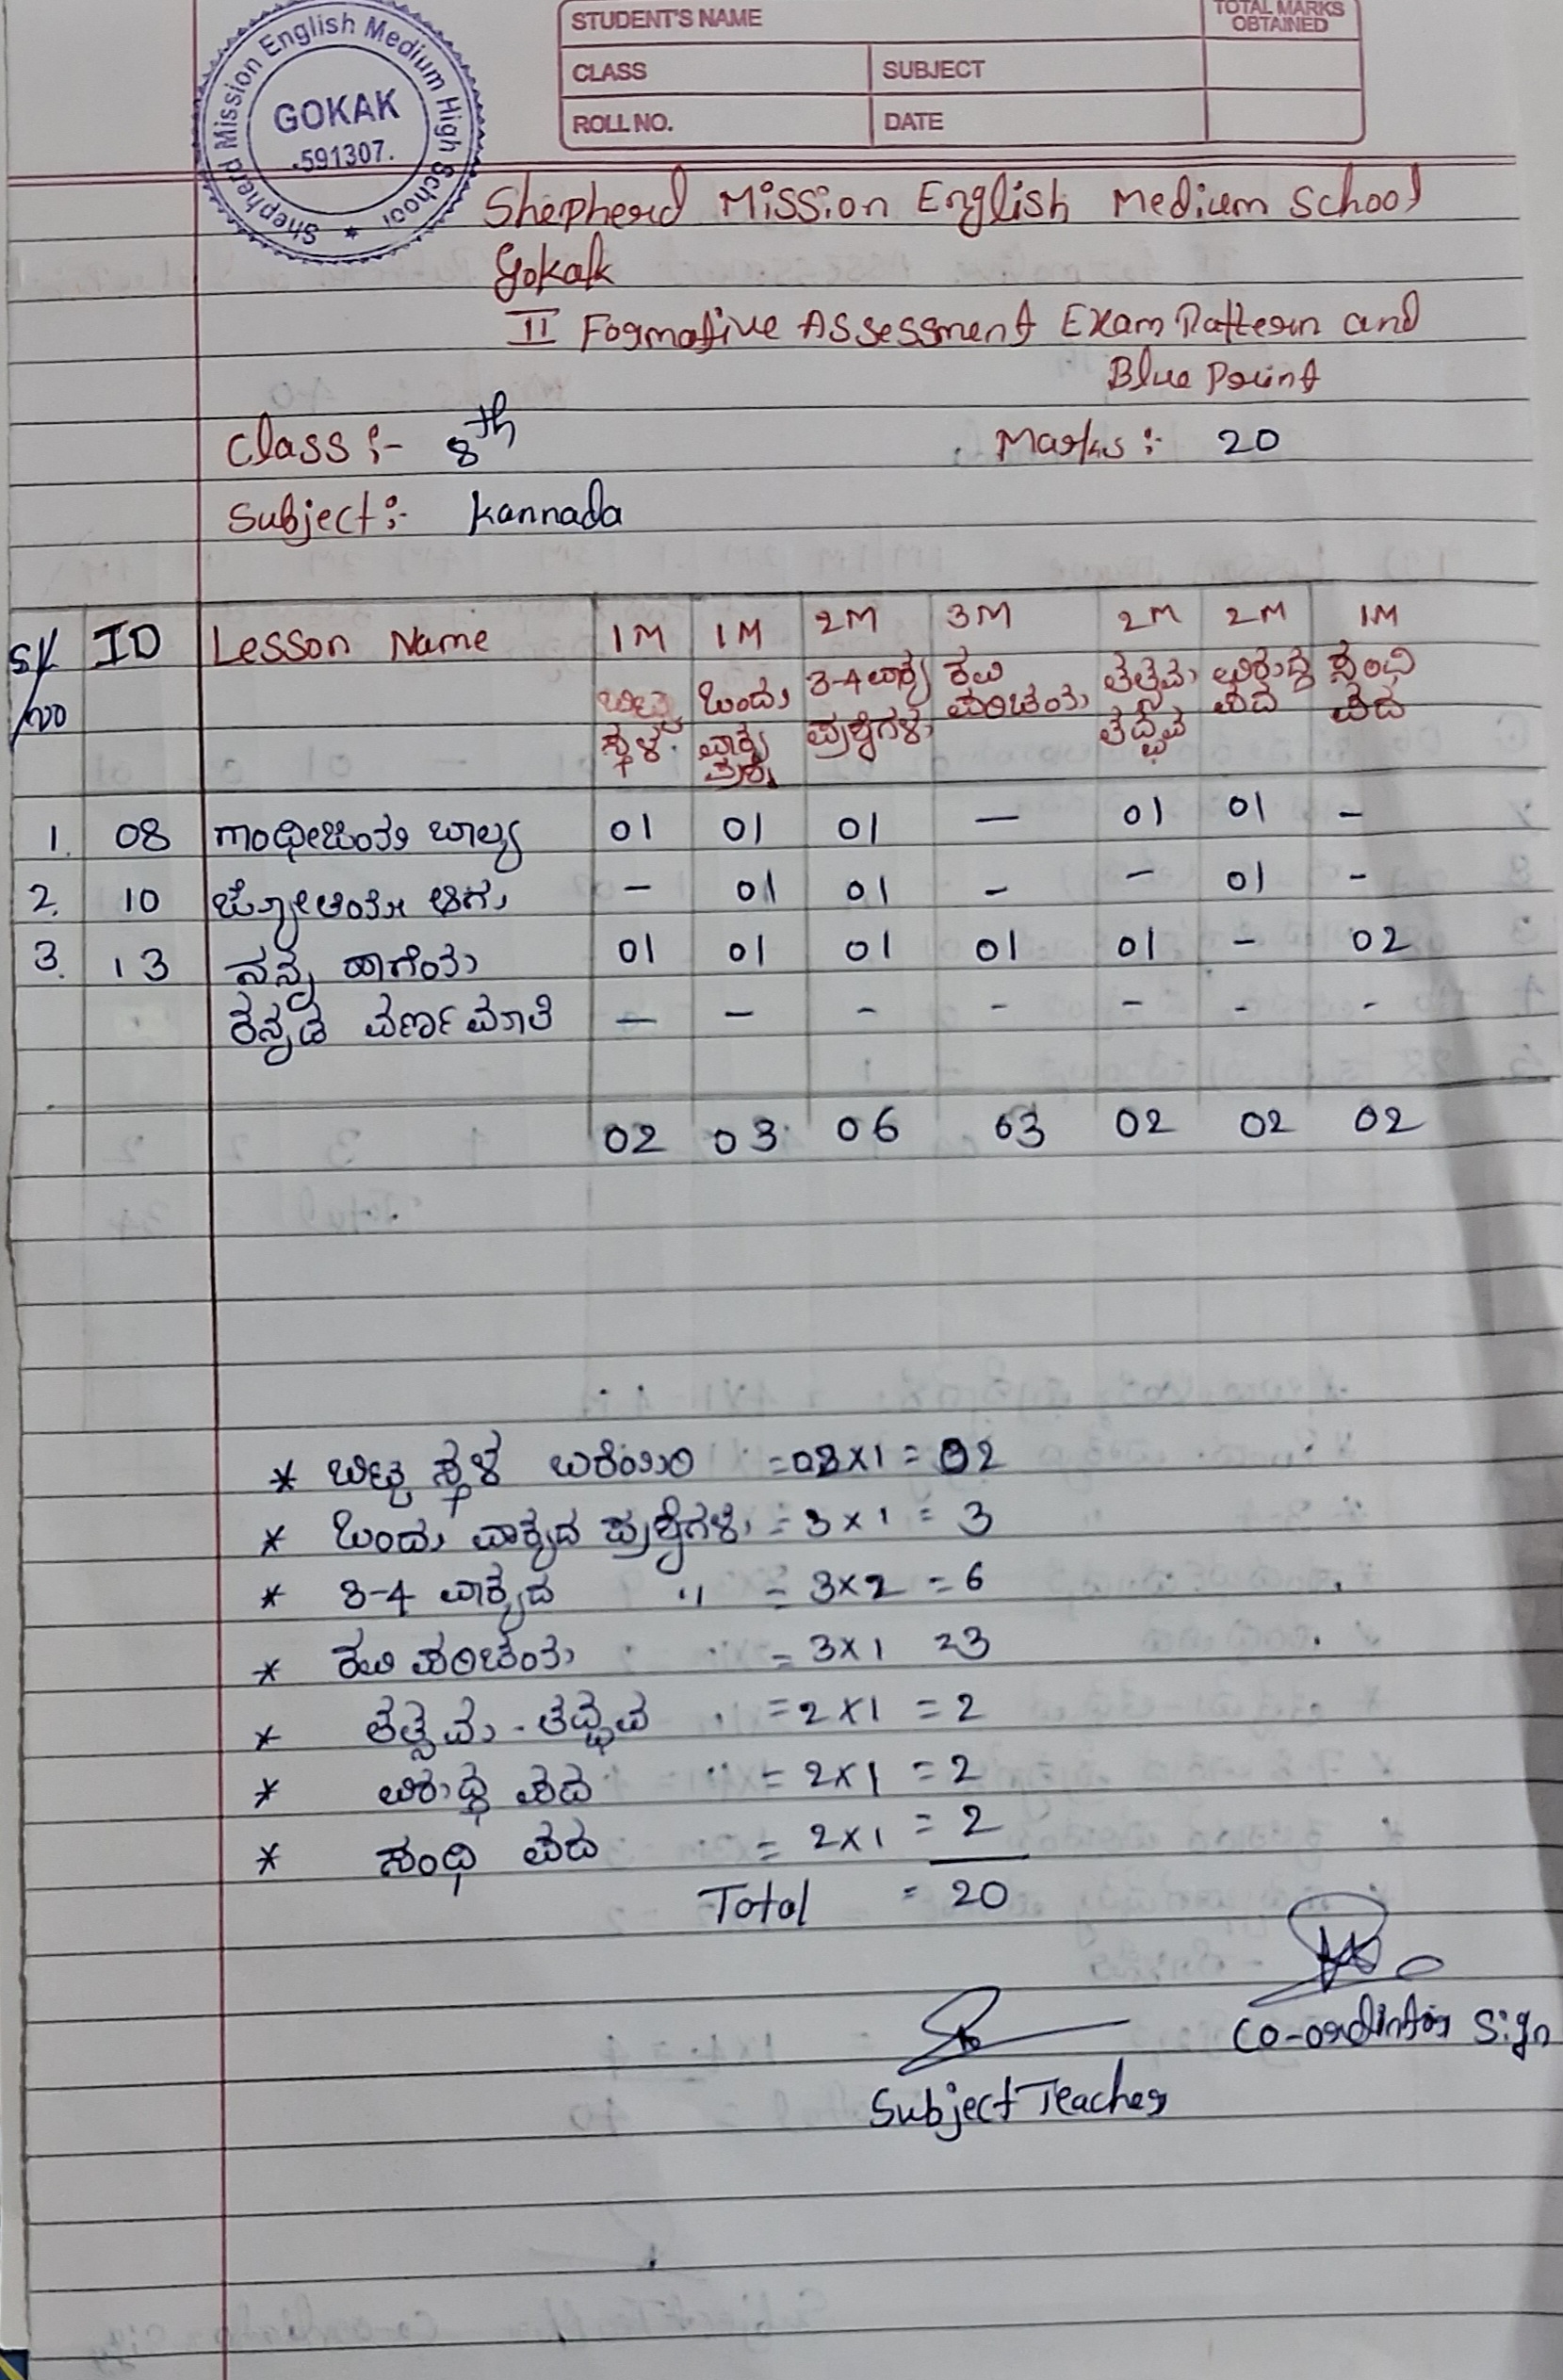 Shepherd Mission English Medium High School
GOKAK
591307.
STUDENT'S NAME
TOTAL MARKS OBTAINED
CLASS SUBJECT
ROLL NO. DATE
Shepherd Mission English Medium School
Gokak
II Formative Assessment Exam Pattern and
Blue Print
Class :- 8th Marks :- 20
Subject :- Kannada
Sl/no ID Lesson Name 1M 1M 2M 3M 2M 2M 1M
ಬಿಟ್ಟ ಒಂದು 3-4 ವಾಕ್ಯ ಕವಿ ತತ್ಸಮ ವಿರುದ್ಧ ಸಂಧಿ
ಸ್ಥಳ. ವಾಕ್ಯ ಪ್ರಶ್ನೆಗಳು ಪರಿಚಯ ತದ್ಭವ ಪದ ಪದ
ಪ್ರಶ್ನೆ
1. 08 ಗಾಂಧೀಜಿಯ ಬಾಲ್ಯ 01 01 01 — 01 01 -
2. 10 ಜ್ಯೋತಿಯೇ ಆಗು - 01 01 - - 01 -
3. 13 ನನ್ನ ಹಾಗೆಯೆ 01 01 01 01 01 - 02
ಕನ್ನಡ ವರ್ಣಮಾಲೆ — - - - - - -
02 03 06 03 02 02 02
* ಬಿಟ್ಟ ಸ್ಥಳ ಬರೆಯಿರಿ = 02 x 1 = 02
* ಒಂದು ವಾಕ್ಯದ ಪ್ರಶ್ನೆಗಳು = 3 x 1 = 3
* 3-4 ವಾಕ್ಯದ " = 3x2 = 6
* ಕವಿ ಪರಿಚಯ = 3x1 = 3
* ತತ್ಸಮ - ತದ್ಭವ = 2x1 = 2
* ವಿರುದ್ಧ ಪದ = 2x1 = 2
* ಸಂಧಿ ಪದ = 2x1 = 2
Total = 20
Co-ordinator Sign
Subject Teacher